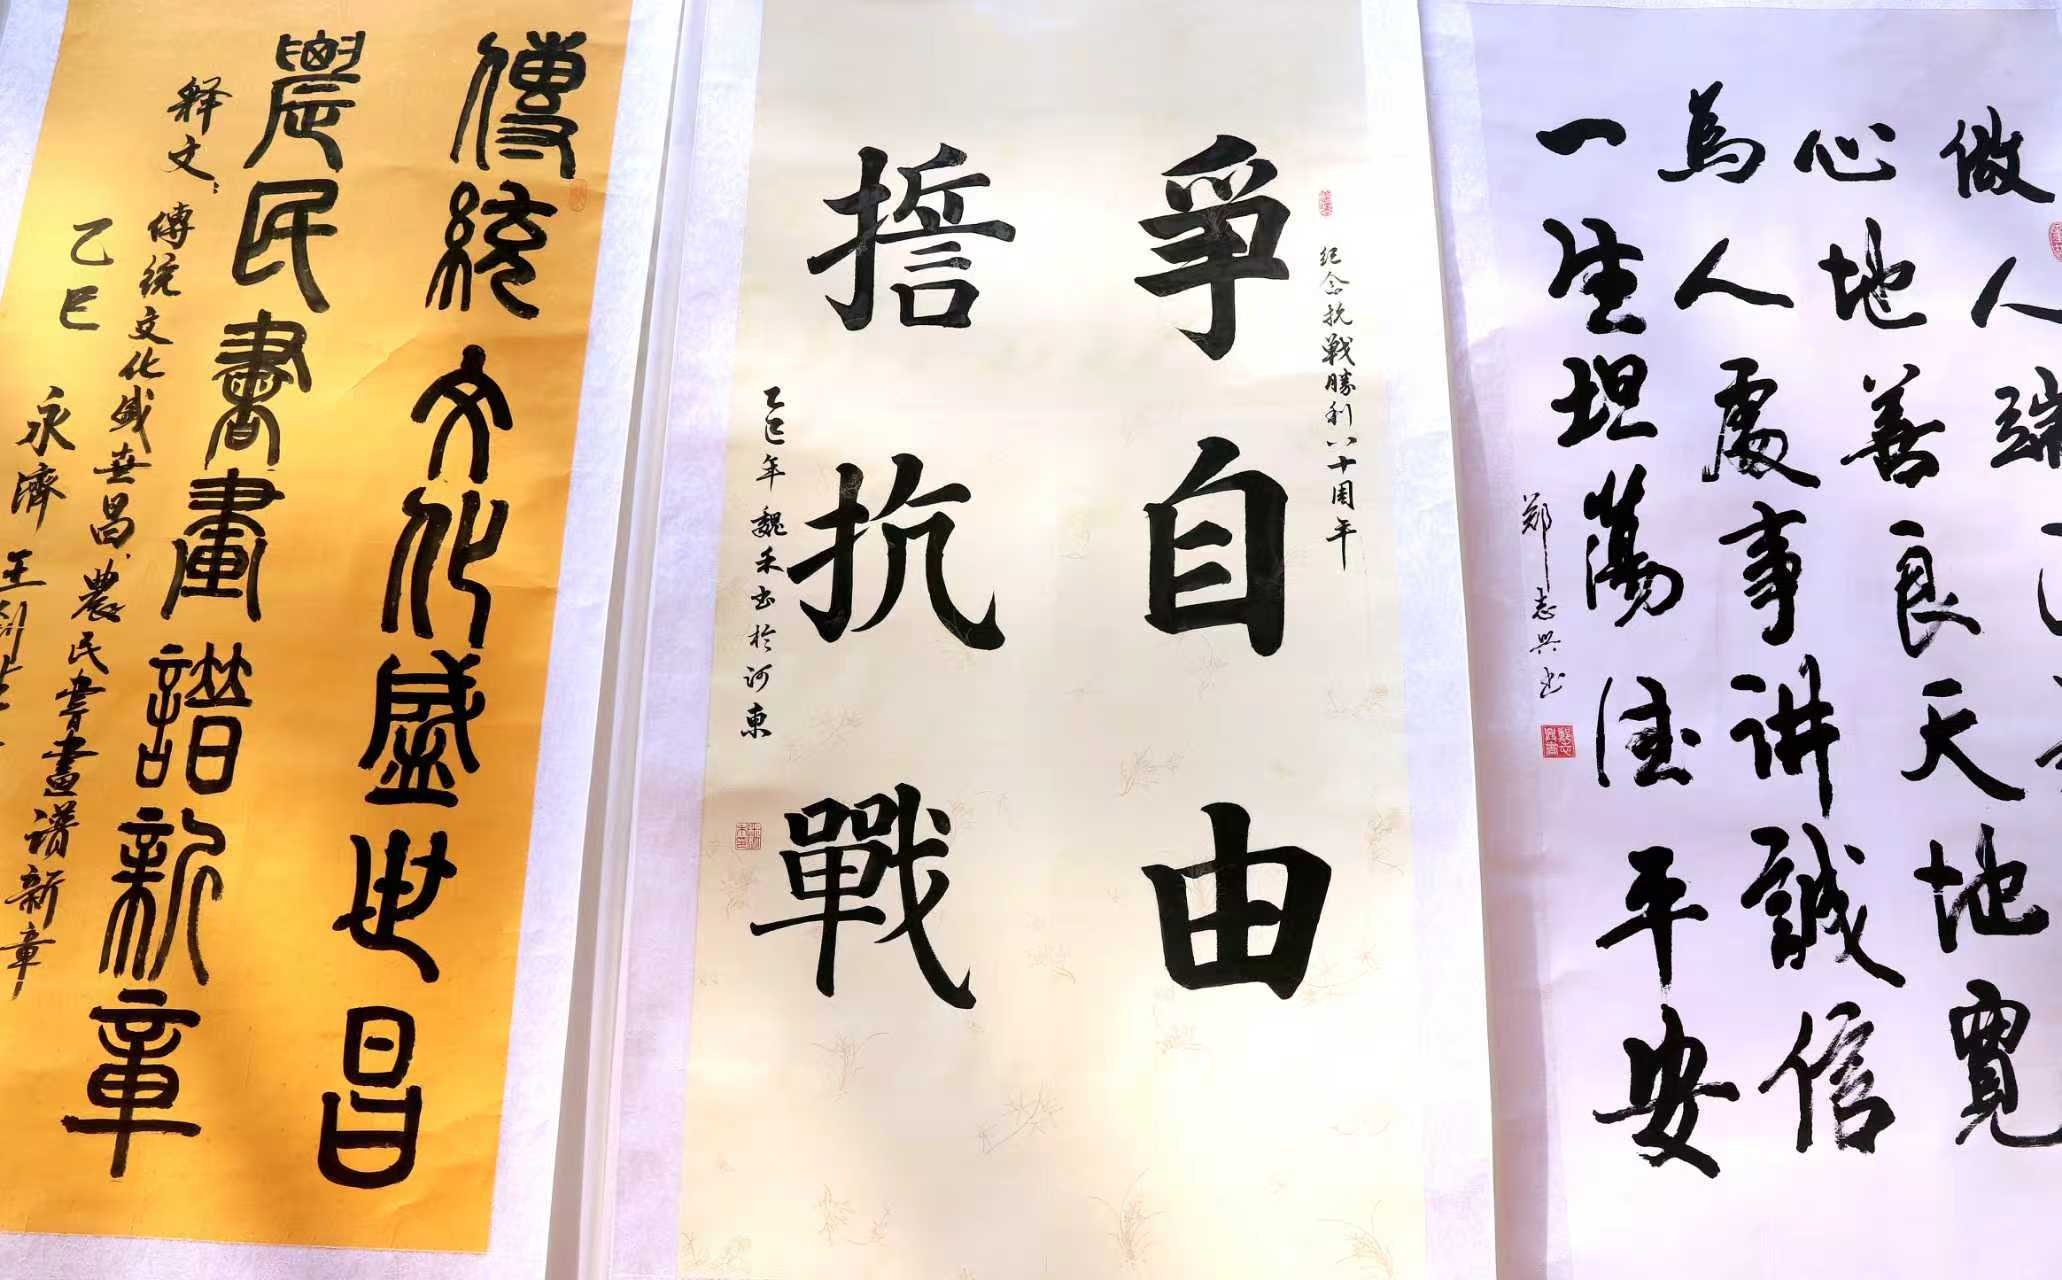 傳統文化盛世昌
農民書畫譜新章
释文：
傳统文化盛世昌、農民書畫谱新章
乙巳 永濟 王
紀念抗戰勝利八十周年
爭自由
誓抗戰
乙巳年 魏禾书於河東
做人端正
心地善良天地寬
為人處事讲誠信
一生坦蕩德平安
郑志興书